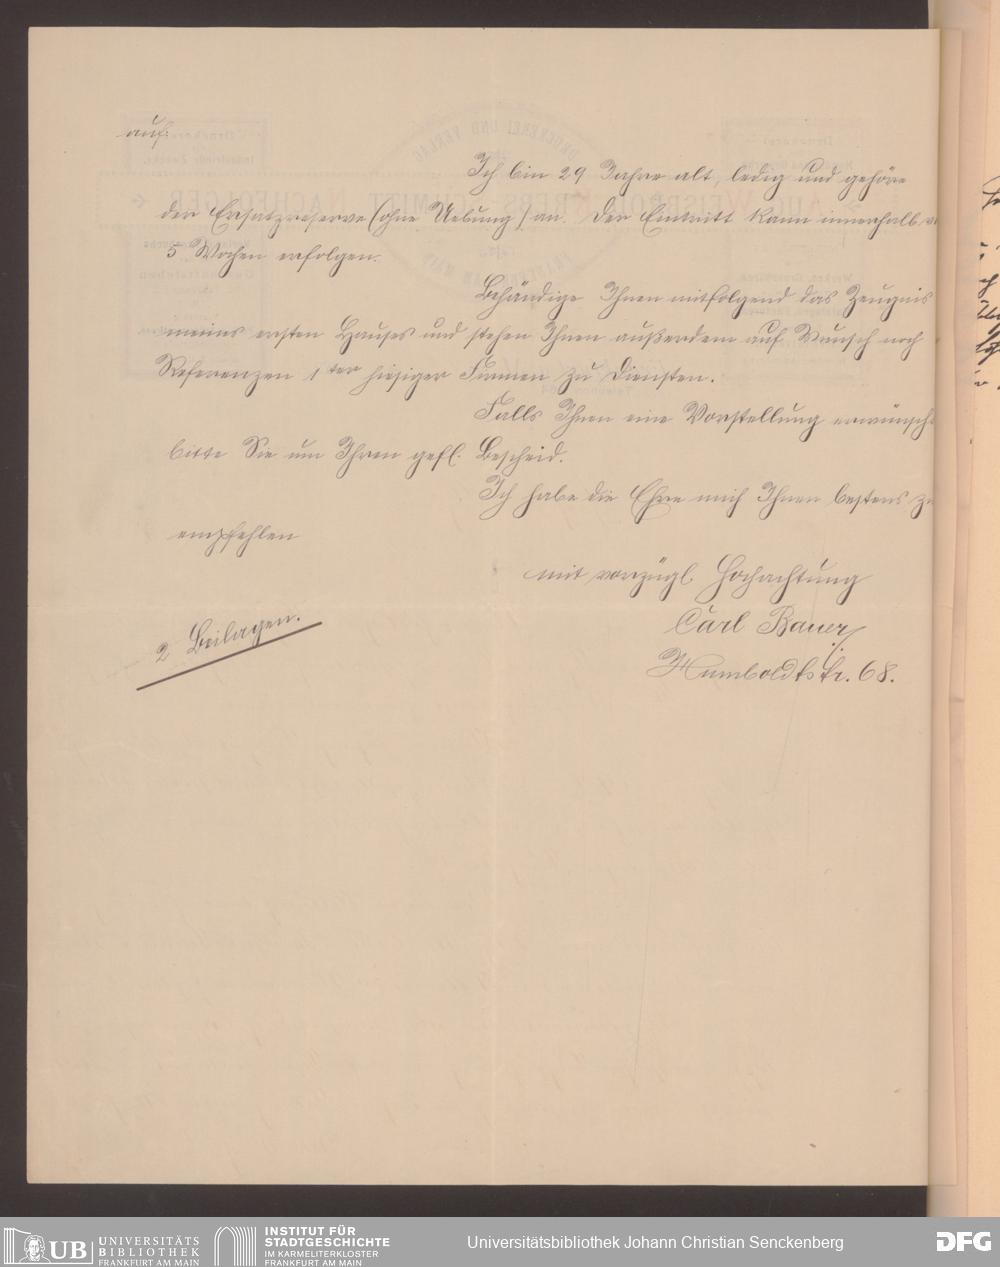 auf.
Ich bin 29 Jahre alt, ledig und gehöre
der Ersatzreserve (ohne Uebung) an. Der Eintritt kann innerhalb
5 Wochen erfolgen.
Behändige Ihnen mitfolgend das Zeugnis
meines ersten Hauses und stehen Ihnen außerdem auf Wunsch noch
Referenzen 1ter hiesiger Firmen zu Diensten.
Falls Ihnen eine Vorstellung erwünscht
bitte Sie um Ihren gefl. Bescheid.
Ich habe die Ehre mich Ihnen bestens zu
empfehlen
mit vorzügl. Hochachtung
Carl Bauer
Humboldtstr. 68.
2 Beilagen.
UB UNIVERSITÄTS
BIBLIOTHEK
FRANKFURT AM MAIN
INSTITUT FÜR
STADTGESCHICHTE
IM KARMELITERKLOSTER
FRANKFURT AM MAIN
Universitätsbibliothek Johann Christian Senckenberg
DFG